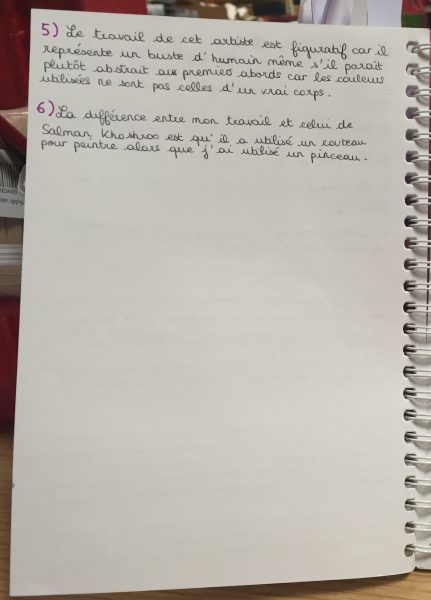 5) Le travail de cet artiste est figuratif car il
représente un buste d'humain même s'il parait
plutôt abstrait aux premiers abords car les couleurs
utilisées ne sont pas celles d'un vrai corps.
6) La différence entre mon travail et celui de
Salman Khoshroo est qu'il a utilisé un couteau
pour peintre alors que j'ai utilisé un pinceau.